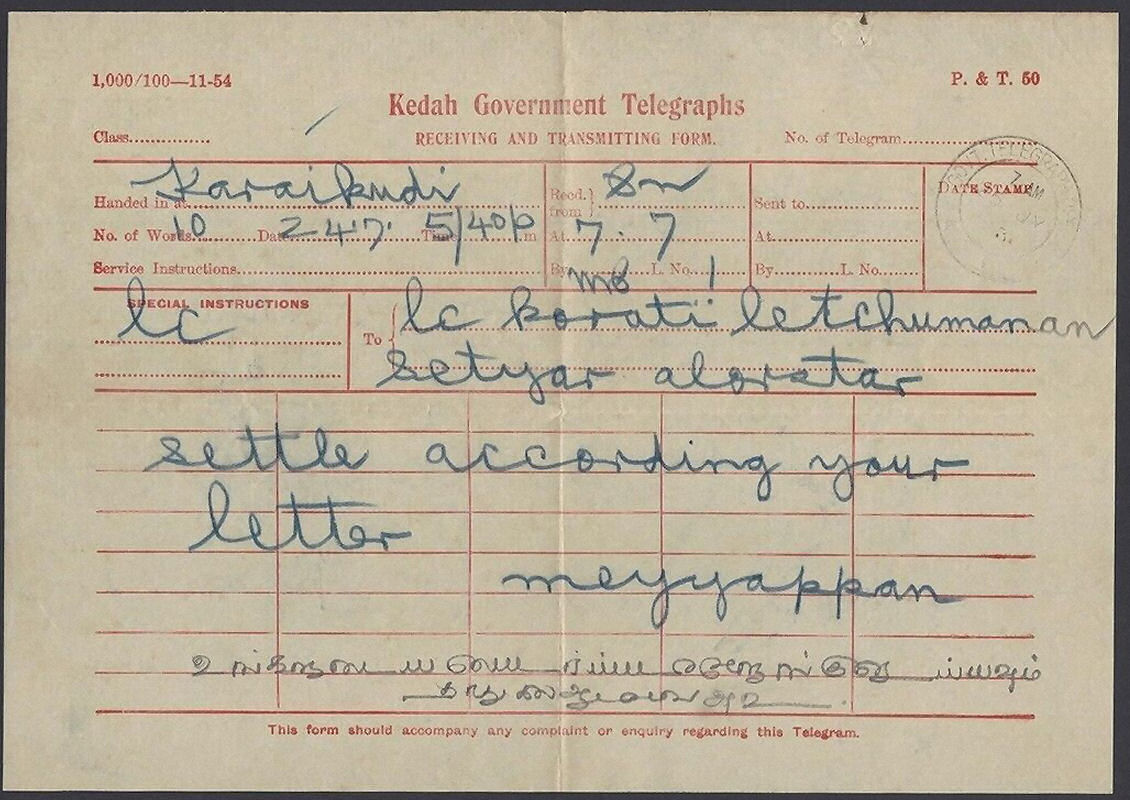 1,000/100—11-54
P. & T. 50
Kedah Government Telegraphs
Class
RECEIVING AND TRANSMITTING FORM.
No. of Telegram
Handed in at Karaikudi
Recd. from Sn
Sent to
DATE STAMP
No. of Words 10 Date 247. Time 5/40p m
At 7. 7
At
Service Instructions
By L. No. 1
By L. No.
SPECIAL INSTRUCTIONS
lc
To lc korati letchumanan
setyar alorstar
settle according your
letter
meyyappan
This form should accompany any complaint or enquiry regarding this Telegram.